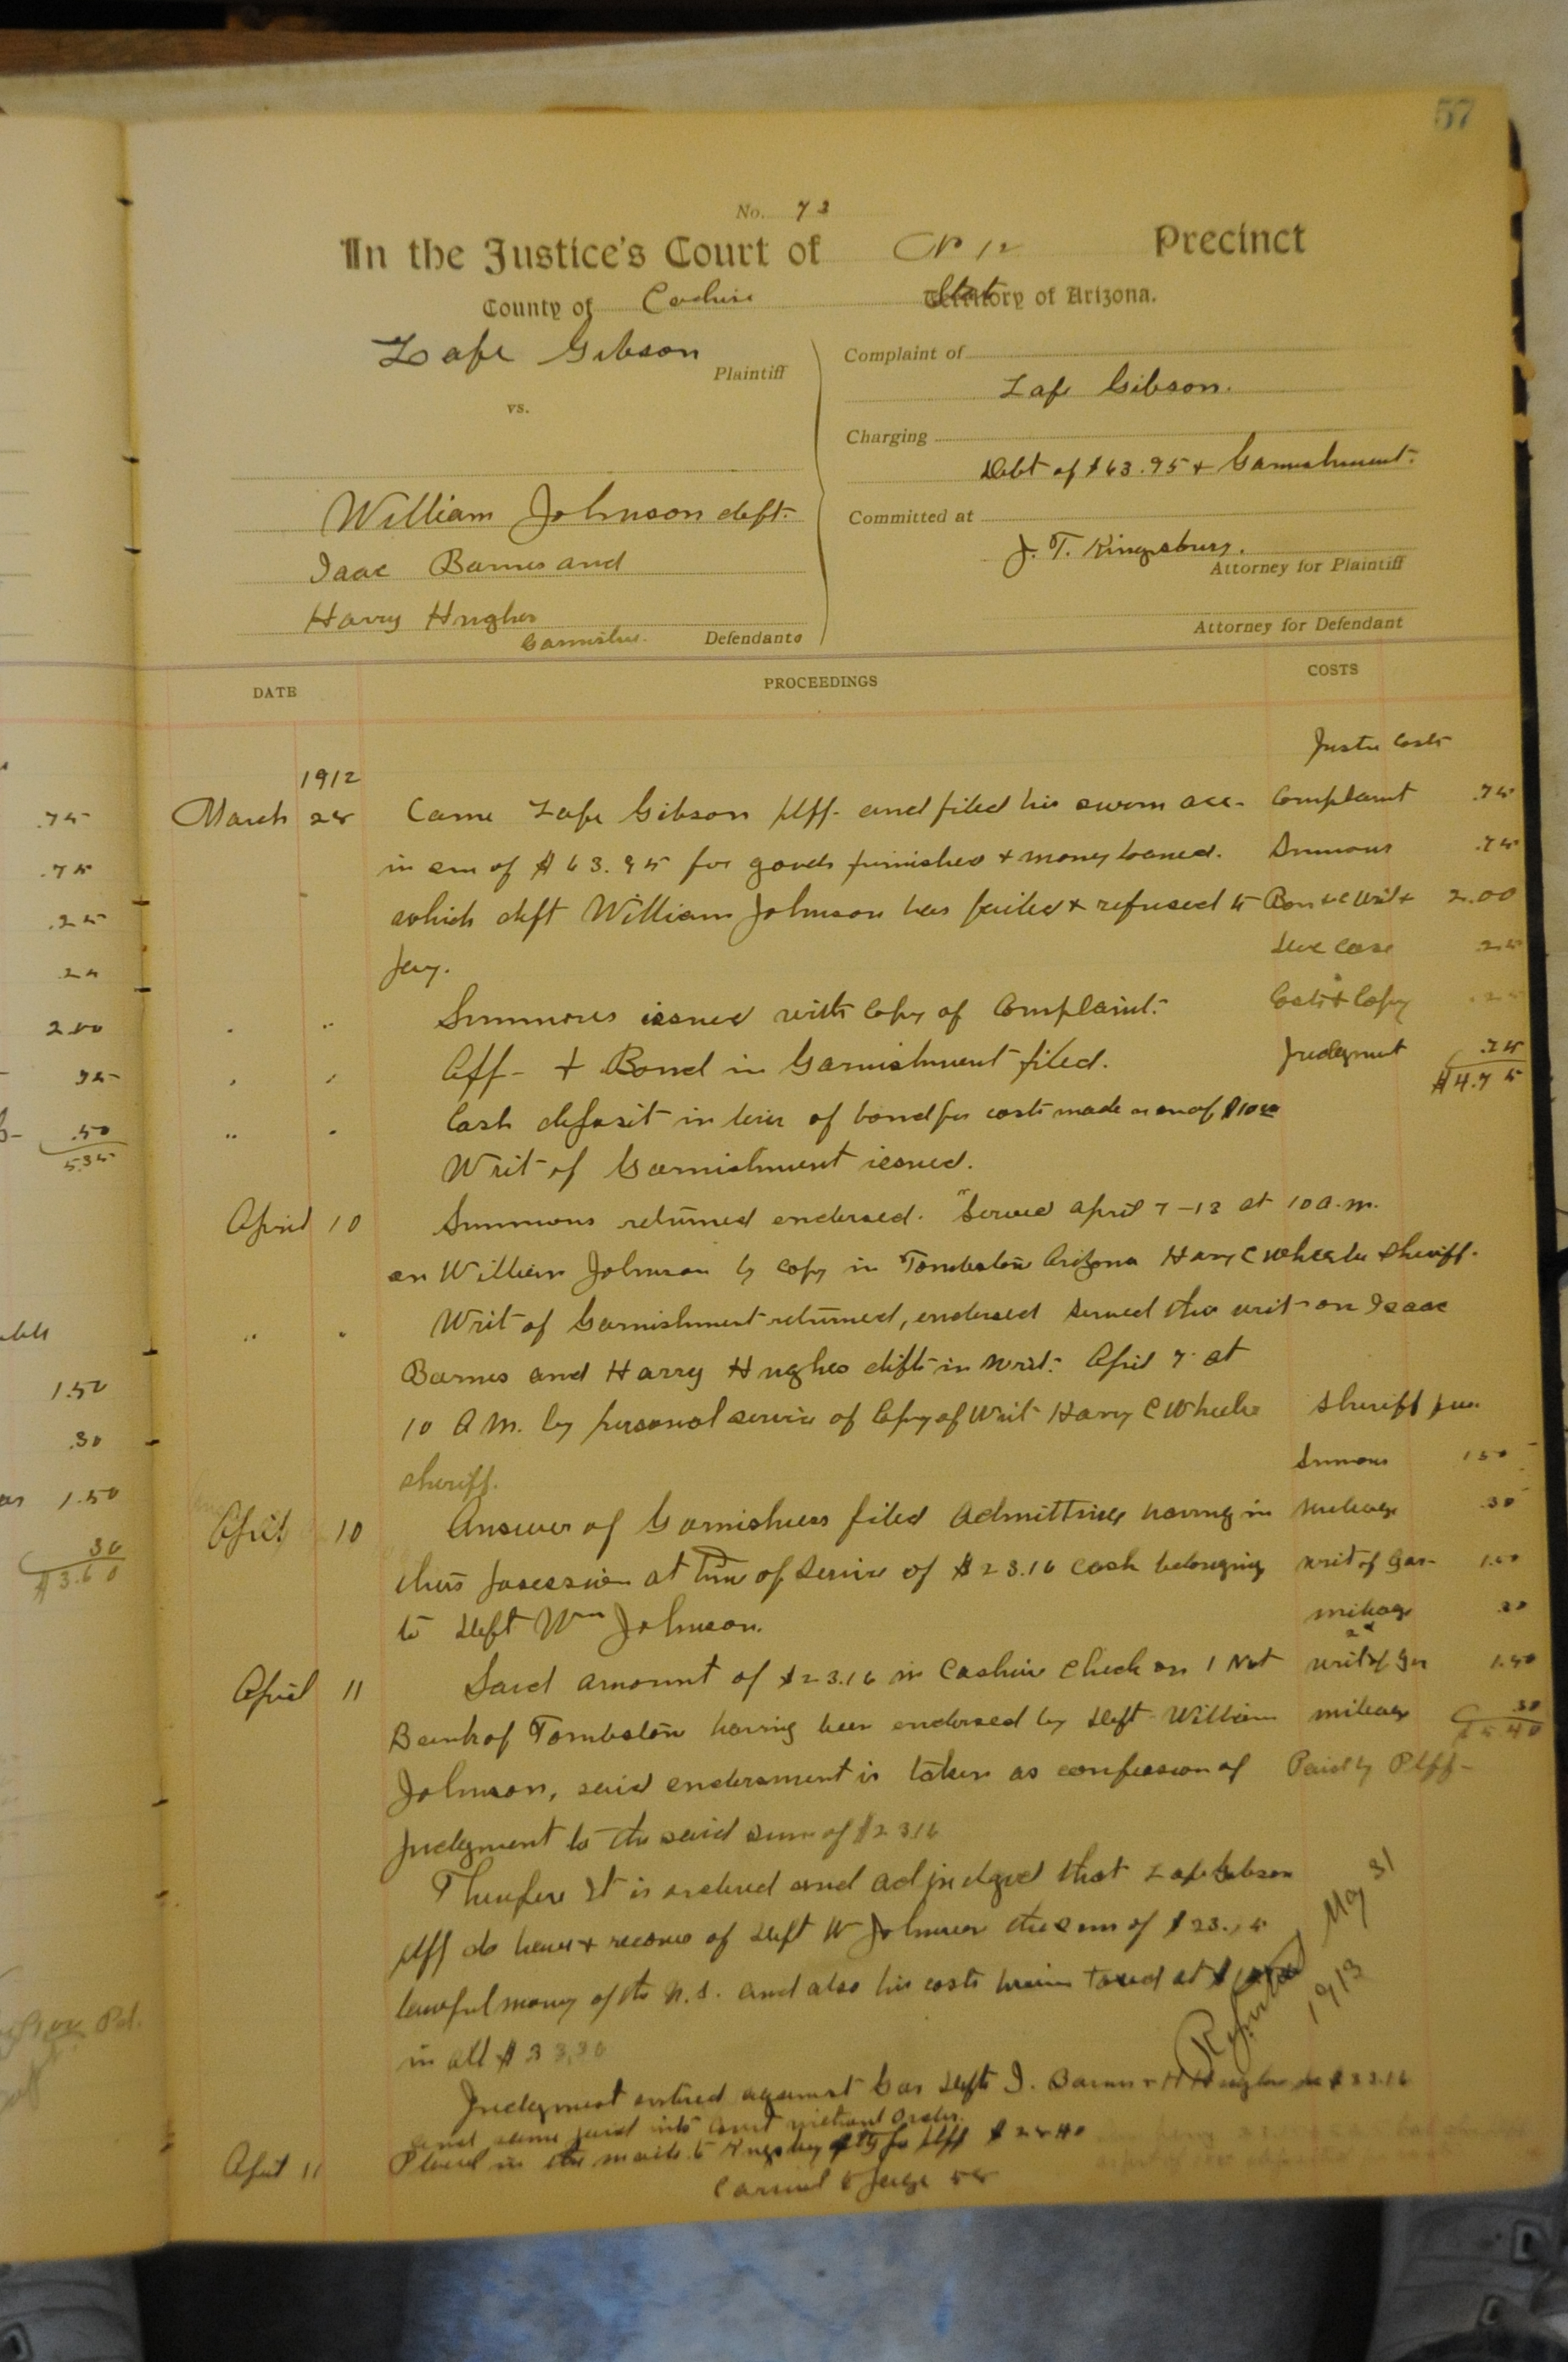 57
No. 73
In the Justice's Court of No 12 Precinct
County of Cochise State of Arizona.
Lafe Gibson
Plaintiff
vs.
William Johnson deft.
Isaac Barnes and
Harry Hughes
Garnishees. Defendants
Complaint of
Lafe Gibson.
Charging
Debt of $63.95 + Garnishment.
Committed at
J. T. Kingsbury.
Attorney for Plaintiff
Attorney for Defendant
DATE PROCEEDINGS COSTS
Justice Costs
1912
March 28 Came Lafe Gibson plff. and filed his sworn acc. Complaint .75
in sum of $63.95 for goods furnished + money loaned. Summons .75
which deft William Johnson has failed + refused to Bond + Writ 2.00
pay. .25
Summons issued with Copy of Complaint. Costs + Copy .25
Aff - + Bond in Garnishment filed. Judgment .75
$4.75
Cash deposit in lieu of bond for costs made in sum of $10.00
Writ of Garnishment issued.
April 10 Summons returned endorsed. "Served April 7-12 at 10 a.m.
on William Johnson by copy in Tombstone Arizona Harry C Wheeler Sheriff.
Writ of Garnishment returned, endorsed served the writ on Isaac
Barnes and Harry Hughes defts in writ. April 7 at
10 A M. by personal service of Copy of Writ Harry C Wheeler Sheriff fees
sheriff. Summons 1.50
April 10 Answer of Garnishees filed Admitting having in mileage .30
their possession at time of service of $23.16 cash belonging writ of Gar- 1.50
to deft Wm Johnson. mileage .30
April 11 Said amount of $23.16 in Cashier Check on 1 Nat 2d writ of Gar 1.50
Bank of Tombstone having been endorsed by deft William mileage .30
5.40
Johnson, said endorsment is taken as confession of Paid by Plff-
Judgment to the said sum of $23.16
Therefore It is ordered and adjudged that Lafe Gibson
plff do have + recover of deft W Johnson the sum of $23.
lawful money of the U.S. and also his costs herein taxed at $
in all $33.30
Reported May 31
1913
Judgment entered against Gar Defts I. Barnes + H Hughes
and same paid into court without order.
April 11 Placed in the mails to Kingsbury atty for plff $28.40
Carried to page 58
.75
.75
.25
2.00
.75
.50
5.35
1.50
.30
1.50
.30
$3.60
Pd.